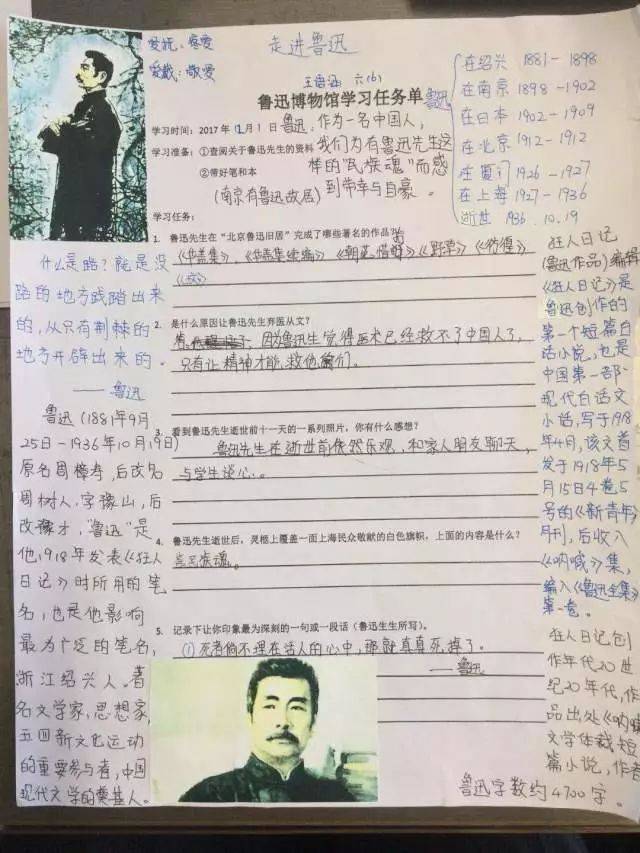 走进鲁迅
爱抚:疼爱
爱戴:敬爱
六(6)
鲁迅博物馆学习任务单
学习时间:2017年12月1日
学习准备:①查阅关于鲁迅先生的资料
②带好笔和本
(南京有鲁迅故居)
鲁迅,作为一名中国人,
我们为有鲁迅先生这
样的“民族魂”而感
到带幸与自豪。
鲁迅
在绍兴 1881-1898
在南京 1898-1902
在日本 1902-1909
在北京 1912-1912
在厦门 1926-1927
在上海 1927-1936
逝世 1936.10.19
学习任务:
1. 鲁迅先生在“北京鲁迅旧居”完成了哪些著名的作品?
《华盖集》、《华盖集续编》《朝花夕拾》《野草》《彷徨》
《坟》
2. 是什么原因让鲁迅先生弃医从文?
因为鲁迅生觉得医术已经救不了中国人了,
只有让精神才能救他们。
3. 看到鲁迅先生逝世前十一天的一系列照片,你有什么感想?
鲁迅先生在逝世前依然乐观,和家人朋友聊天,
与学生谈心。
4. 鲁迅先生逝世后,灵柩上覆盖一面上海民众敬献的白色旗帜,上面的内容是什么?
民族魂。
5. 记录下让你印象最为深刻的一句或一段话(鲁迅生生所写)。
①死者倘不埋在活人的心中,那就真真死掉了。
——鲁迅
什么是路?就是没
路的地方践踏出来
的,从只有荆棘的
地方开辟出来的。
——鲁迅
鲁迅(1881年9月
25日-1936年10月19日)
原名周樟寿,后改名
周树人,字豫山,后
改豫才,“鲁迅”是
他1918年发表《狂人
日记》时所用的笔
名,也是他影响
最为广泛的笔名,
浙江绍兴人。著
名文学家,思想家,
五四新文化运动
的重要参与者,中国
现代文学的奠基人。
狂人日记
(鲁迅作品)编辑
《狂人日记》是
鲁迅创作的
第一个短篇白
话小说,也是
中国第一部
现代白话文
小话,写于1918
年4月,该文首
发于1918年5
月15日4卷5
号的《新青年》
月刊,后收入
《呐喊》集,
编入《鲁迅全集》
第一卷。
狂人日记创
作年代20世
纪20年代,作
品出处《呐喊》
文学体裁短
篇小说,作者
鲁迅字数约4700字。